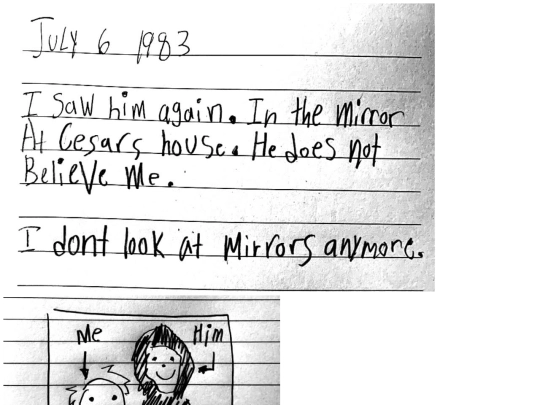 JULY 6 1983
I Saw him again. In the mirror
At Cesars house. He does not
Believe Me.
I dont look at Mirrors anymore.
Me
Him